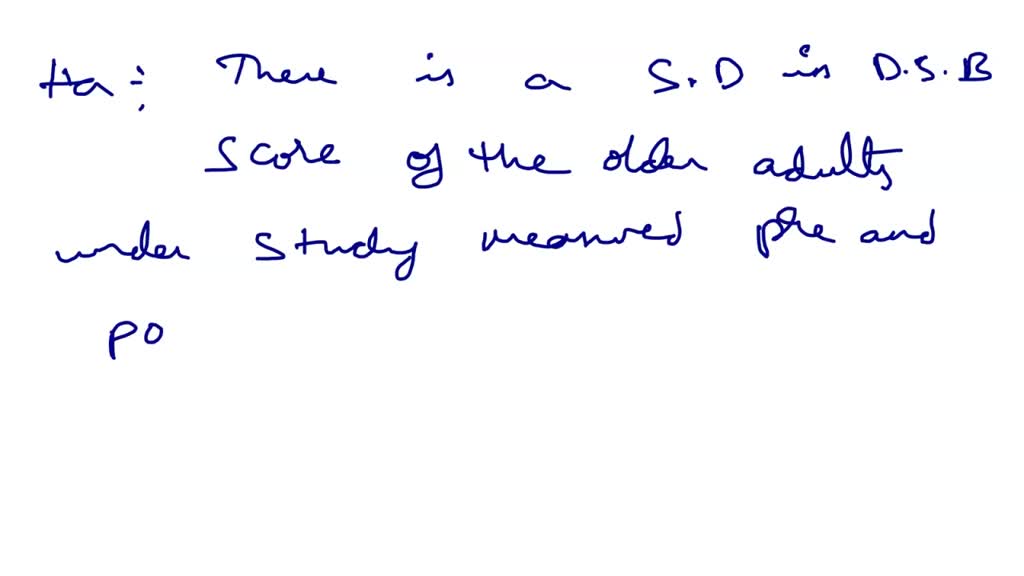 Ha : There is a S.D in D.S.B
Score of the older adults
under study measured pre and
po